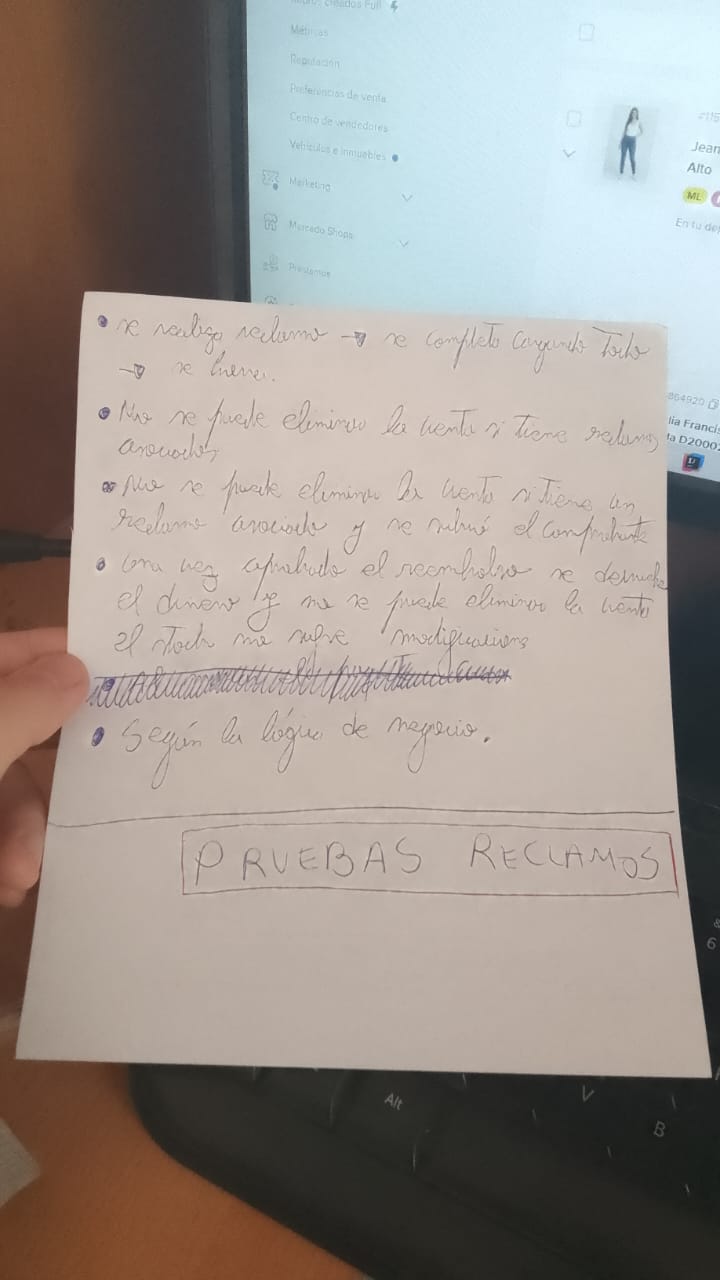 Métricas
Reputación
Preferencias de venta
Centro de vendedores
Vehículos e inmuebles
Marketing
Mercado Shops
Préstamos
#115
Jean
Alto
ML
En tu de
864920
lia Francis
la D2000
• se realiza reclamo → se completa cargando Todo
→ se
• No se puede eliminar la venta si tiene reclamos
asociados
• No se puede eliminar la venta si tiene un
reclamo asociado y se subió el comprobante
• Una vez aprobado el reembolso se devuelve
el dinero y no se puede eliminar la venta
el stock no sufre modificaciones
• Según la lógica de negocio.
PRUEBAS RECLAMOS
6
Alt
V
B